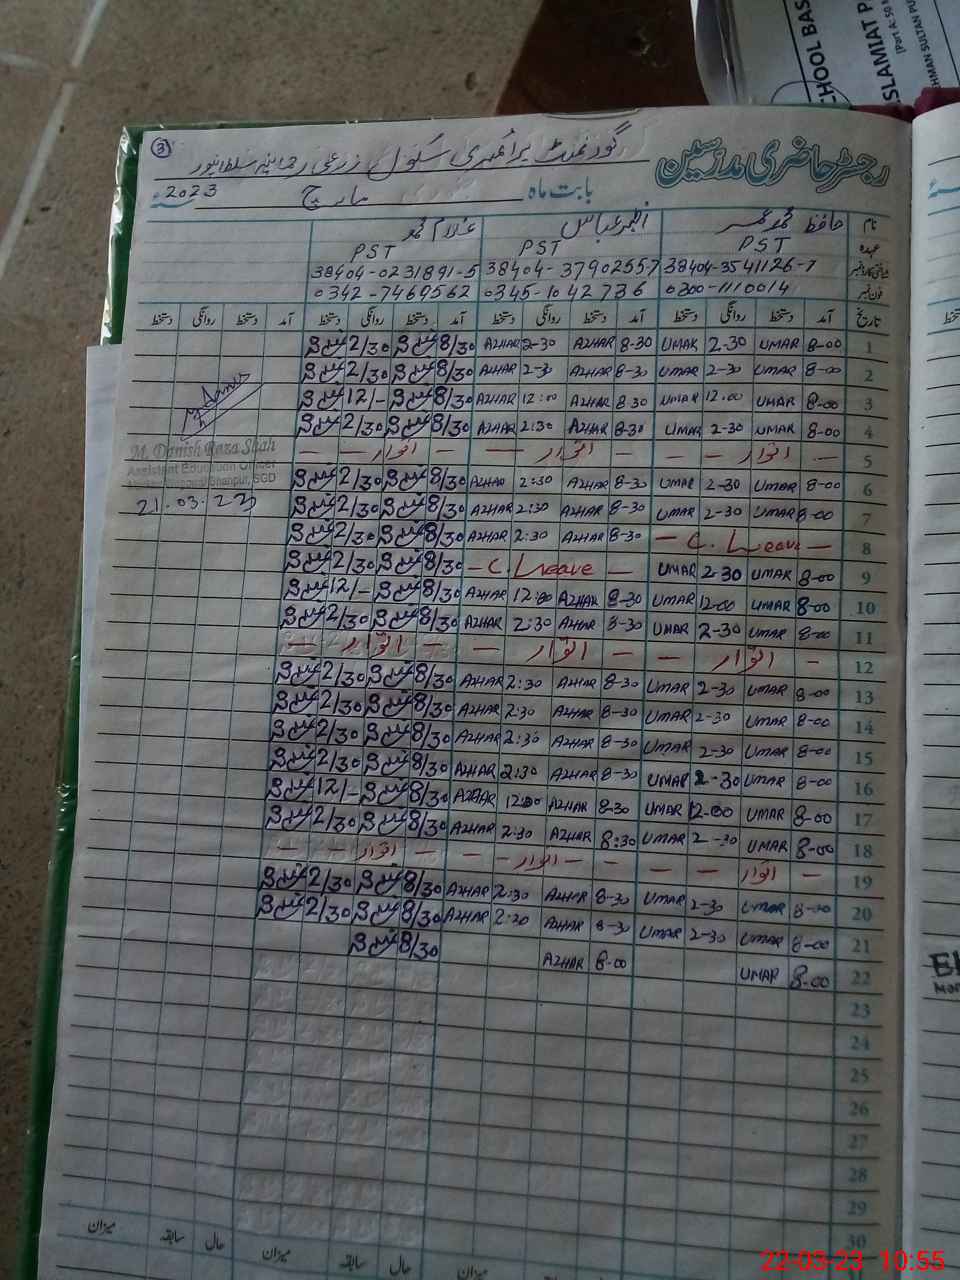 SCHOOL BAS
ISLAMIAT P
[Part A: 50
HMAN SULTAN PU
3
رجسٹر حاضری مدرسین
گورنمنٹ پرائمری سکول زرعی
بابت ماہ مارچ 2023
نام حافظ محمد عمر اظہر عباس غلام محمد
عہدہ PST PST PST
38404-3541126-7 38404-3790255-7 38404-0231891-5
فون نمبر 0300-1110014 0345-1042736 0342-7469562
تاریخ آمد دستخط روانگی دستخط آمد دستخط روانگی دستخط آمد دستخط روانگی دستخط آمد دستخط روانگی دستخط
1 8-00 UMAR 2-30 UMAR 8-30 AZHAR 2-30 AZHAR 8/30 2/30
2 8-00 UMAR 2-30 UMAR 8-30 AZHAR 2-30 AZHAR 8/30 2/30
3 8-00 UMAR 12.00 UMAR 8-30 AZHAR 12:00 AZHAR 8/30 12/-
4 8-00 UMAR 2-30 UMAR 8-30 AZHAR 2:30 AZHAR 8/30 2/30
5 — اتوار — — اتوار — — اتوار —
6 8-00 UMAR 2-30 UMAR 8-30 AZHAR 2:30 AZHAR 8/30 2/30
7 8-00 UMAR 2-30 UMAR 8-30 AZHAR 2:30 AZHAR 8/30 2/30
8 — C. Leave — 8-30 AZHAR 2:30 AZHAR 8/30 2/30
9 8-00 UMAR 2-30 UMAR — C. Leave — 8/30 2/30
10 8-00 UMAR 12-00 UMAR 8-30 AZHAR 12:00 AZHAR 8/30 12/-
11 8-00 UMAR 2-30 UMAR 8-30 AZHAR 2:30 AZHAR 8/30 2/30
12 — اتوار — — اتوار — — اتوار —
13 8-00 UMAR 2-30 UMAR 8-30 AZHAR 2:30 AZHAR 8/30 2/30
14 8-00 UMAR 2-30 UMAR 8-30 AZHAR 2:30 AZHAR 8/30 2/30
15 8-00 UMAR 2-30 UMAR 8-30 AZHAR 2:30 AZHAR 8/30 2/30
16 8-00 UMAR 2-30 UMAR 8-30 AZHAR 2:30 AZHAR 8/30 2/30
17 8-00 UMAR 12-00 UMAR 8-30 AZHAR 12:00 AZHAR 8/30 12/-
18 8-00 UMAR 2-30 UMAR 8:30 AZHAR 2:30 AZHAR 8/30 2/30
19 — اتوار — — اتوار — — اتوار —
20 8-00 UMAR 2-30 UMAR 8-30 AZHAR 2:30 AZHAR 8/30 2/30
21 8-00 UMAR 2-30 UMAR 8-30 AZHAR 2:30 AZHAR 8/30 2/30
22 8-00 UMAR 8-00 AZHAR 8/30
23
24
25
26
27
28
29
30
M. Danish Raza Shah
Assistant Education Officer
SGD
21.03.23
حال سابقہ میزان حال سابقہ میزان
22-03-23 10:55